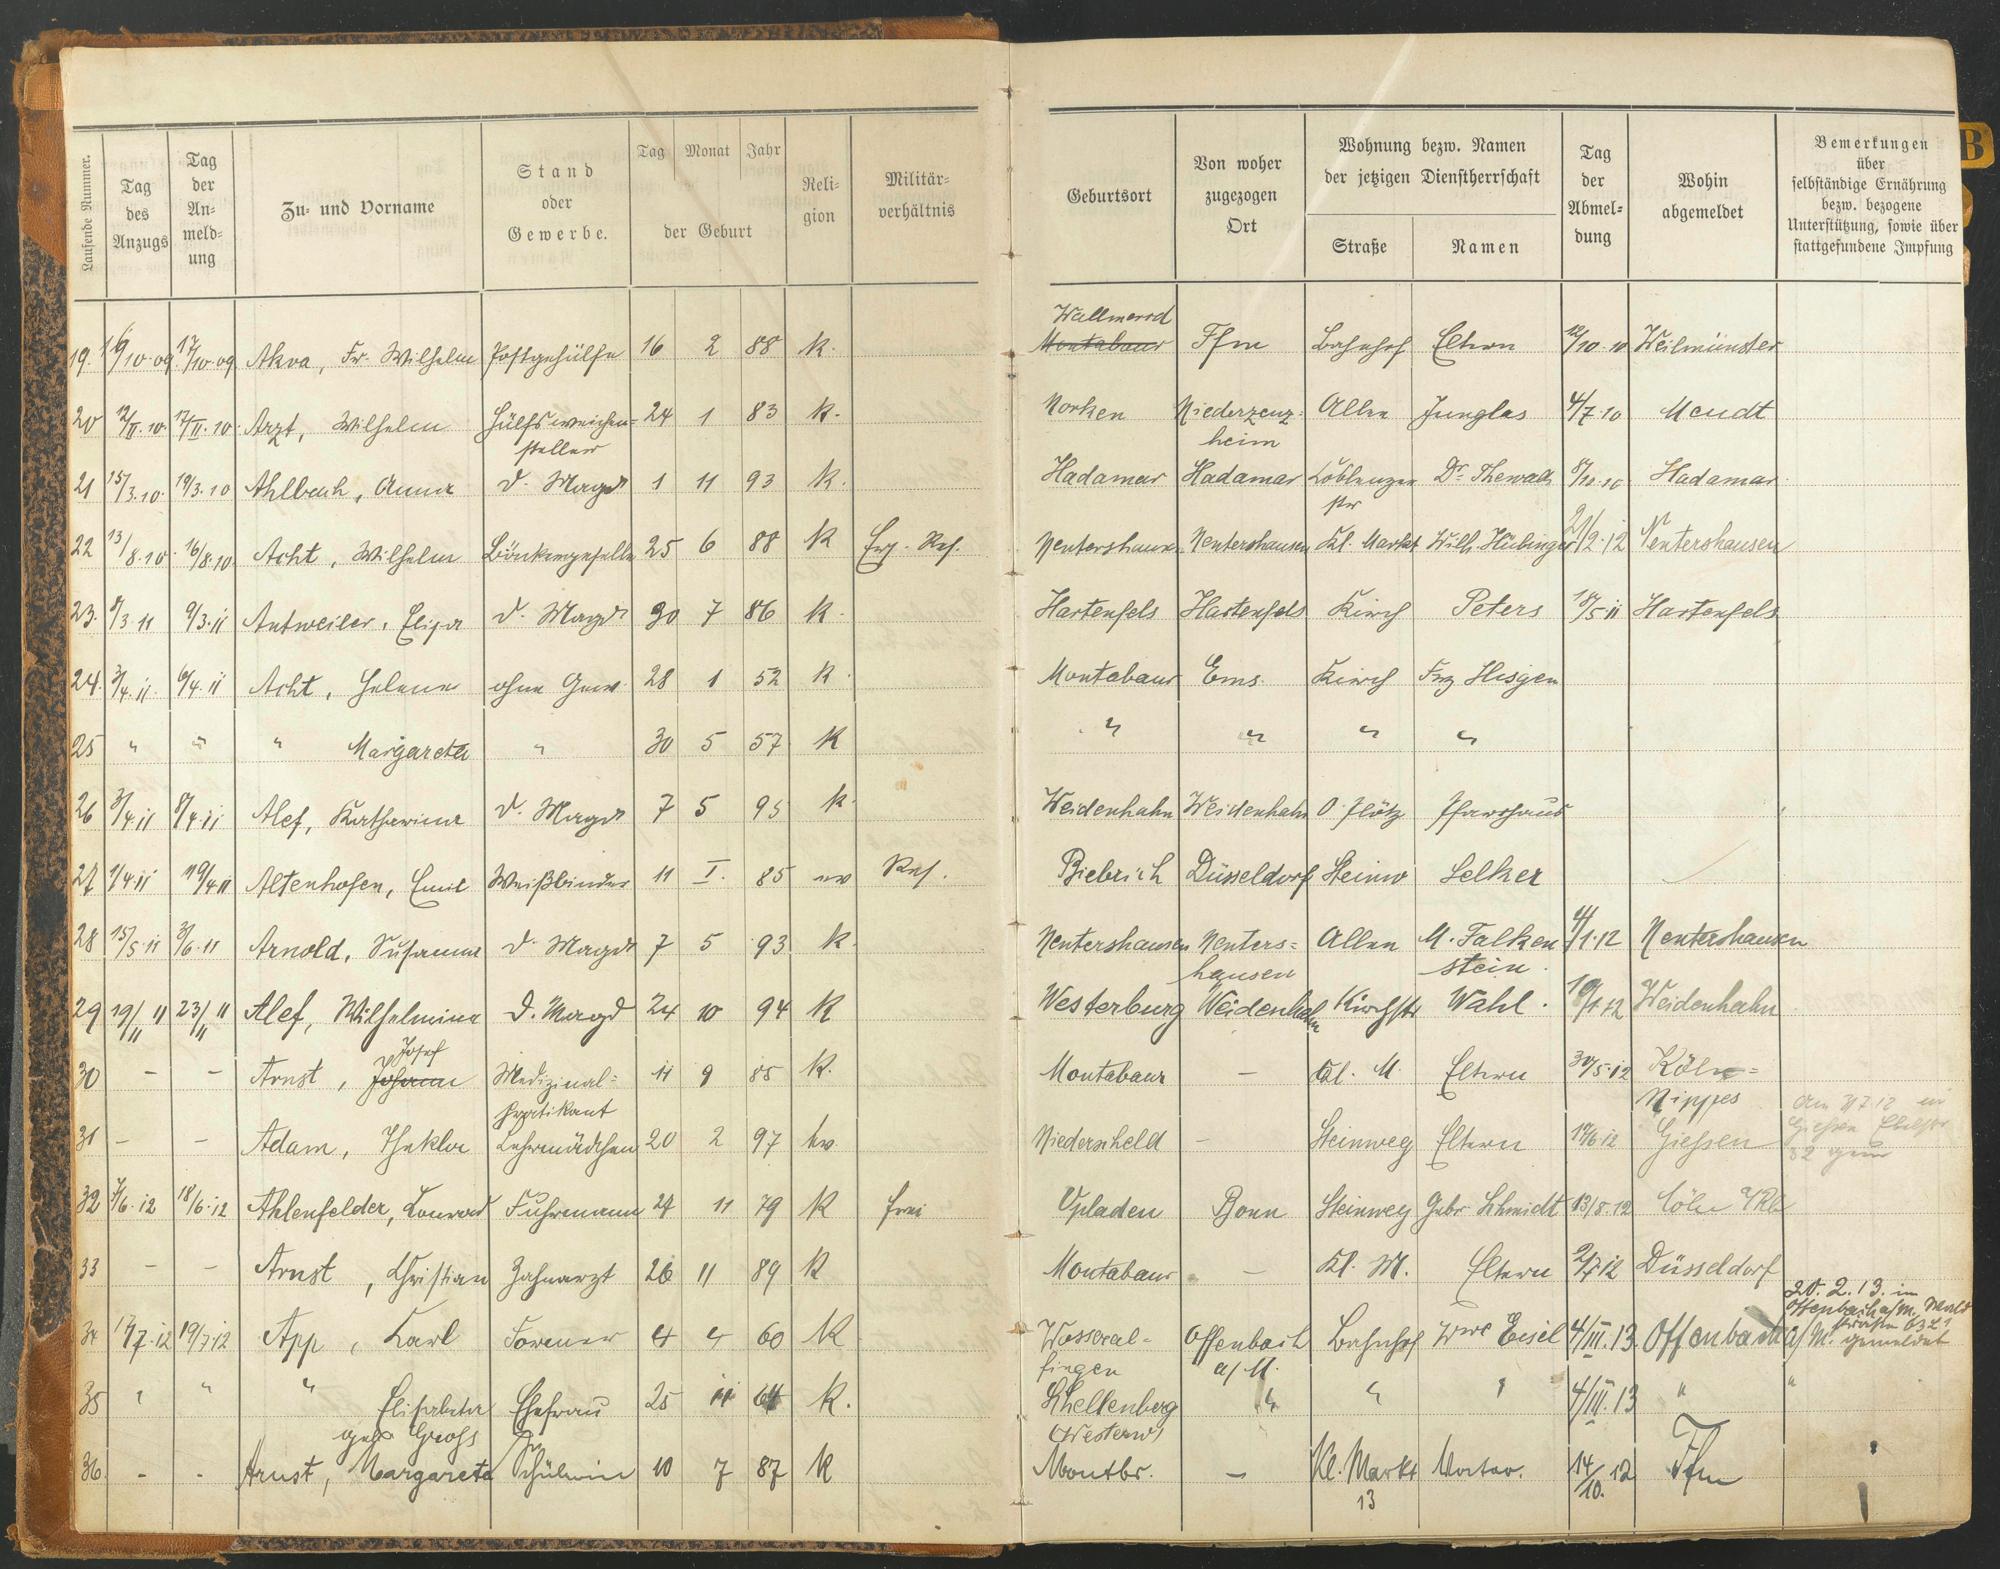 Laufende Nummer.
Tag des Anzugs
Tag der An-meld-ung
Zu- und Vorname
Stand oder Gewerbe.
Tag Monat Jahr
der Geburt
Reli-gion
Militär-verhältnis
Geburtsort
Von woher zugezogen Ort
Wohnung bezw. Namen
der jetzigen Dienstherrschaft
Straße
Namen
Tag der Abmel-dung
Wohin abgemeldet
Bemerkungen
über
selbständige Ernährung
bezw. bezogene
Unterstützung, sowie über
stattgefundene Impfung
B
Wallmerod
19. 16/10.09 17/10.09 Akva, Fr. Wilhelm Postgehülfe 16 2 88 K. Montabaur Ffm Bahnhof Eltern 12/10.10 Weilmünster
20 12/II.10 17/II.10 Arzt, Wilhelm Hülfsweichen= 24 1 83 K. Norken Niederzeuz= Allee Junglas 4/7.10 Meudt
steller heim
21 15/3.10. 19/3.10 Ahlbach, Anna d. Magd 1 11 93 K. Hadamar Hadamar Coblenzer Dr. Thewalt 8/10.10 Hadamar
str
22 13/8.10 16/8.10 Acht, Wilhelm 25 6 88 K Ers. Res. Nentershausen Nentershausen Kl. Markt Wilh. Hübinger 21/2.12 Nentershausen
23. 8/3.11 9/3.11 Antweiler, Elisa d. Magd 30 7 86 K. Hartenfels Hartenfels Kirch Peters 18/5 11 Hartenfels
24. 3/4.11. 6/4.11 Acht, Helene ohne Gew 28 1 52 K. Montabaur Ems. Kirch Frz Hisgen
25 " " " Margareta " 30 5 57 K " " " "
26 3/4.11 8/4.11 Alef, Katharina d. Magd 7 5 95 K. Weidenhahn Weidenhahn O. Plötz Pfarrhaus
27 1/4.11 19/4.11 Altenhofen, Emil Weißbinder 11 I. 85 ev Res. Biebrich Düsseldorf Steinw Selker
28 15/5.11 3/6.11 Arnold, Susanna d. Magd 7 5 93 K. Nentershausen Nenters= Allee M. Falken 4/1.12 Nentershausen
hausen stein.
29 19/11 11 23/11 11 Alef, Wilhelmina D. Magd 24 10 94 K Westerburg Weidenhahn Kirchstr Wahl. Weidenhahn
Josef
30 – – Arnst, Johann Medizinal= 11 9 85 K. Montabaur – Kl. M. Eltern 30/5.12 Köln=
Praktikant Nippes
31 – – Adam, Thekla Lehrmädchen 20 2 97 ev. Niederscheld – Steinweg Eltern Giessen
am 3/7 12 in
Giessen
32 gem
32 18/6.12 Ahlenfelder, Conrad Fuhrmann 11 79 K frei Opladen Bonn Steinweg Gebr Schmidt 13/8.12 Cöln a/Rh
33 – – Arnst, Christian Zahnarzt 26 11 89 K Montabaur – Kl. M. Eltern 2/7.12 Düsseldorf
20. 2. 13. in
Offenbach a/M.
34 17/7.12 19/7.12 App, Karl Former 4 4 60 K Wasseral= Offenbach Bahnhof Wwe Eisel 4/III.13. Offenbach a/M. gemeldet
fingen a/M.
35 " " " Elisabeta Ehefrau 25 11 64 K. Schellenberg " " " 4/III.13 " "
geb Gross (Westerw)
36 – – Arnst, Margareta Schülerin 10 7 87 K Montbr. – Kl. Markt Vater. 14/10. 12 Ffm
13